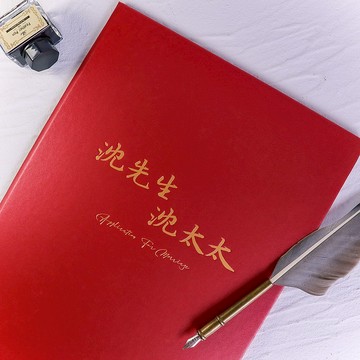 沈先生
沈太太
Application For Marriage